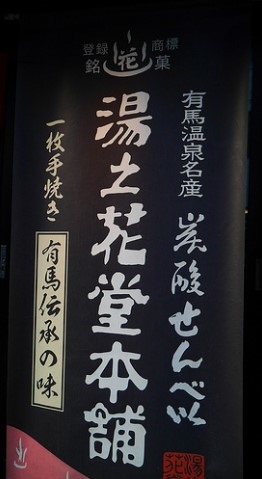 登録商標
銘菓
花
有馬温泉名産
炭酸せんべい
湯之花堂本舗
一枚手焼き
有馬伝承の味
湯花